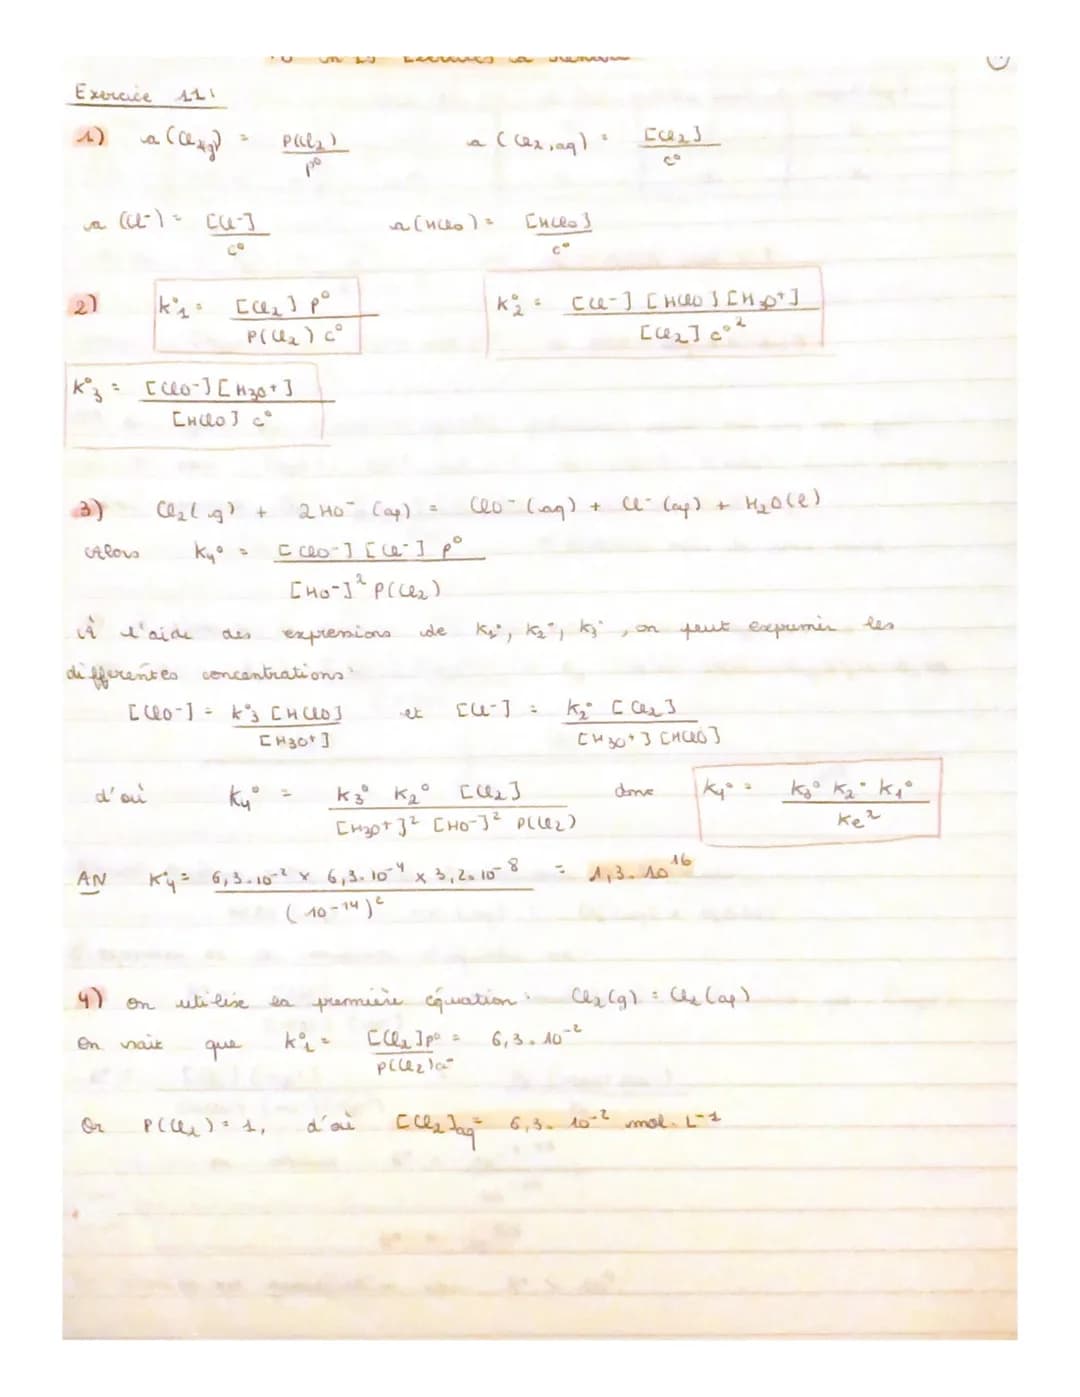 Exercice 11:
1) a(Cl2,g) = P(Cl2)/p° a(Cl2,aq) = [Cl2]/c°
a(Cl-) = [Cl-]/c° a(HClO) = [HClO]/c°
2) K°1 = [Cl2] p° / P(Cl2) c° K°2 = [Cl-] [HClO] [H3O+] / [Cl2] c°²
K°3 = [ClO-] [H3O+] / [HClO] c°
3) Cl2(g) + 2HO-(aq) = ClO-(aq) + Cl-(aq) + H2O(l)
Alors K4° = [ClO-] [Cl-] p° / [HO-]² P(Cl2)
À l'aide des expressions de K1°, K2°, K3°, on peut exprimer les
différentes concentrations:
[ClO-] = K°3 [HClO] / [H3O+] et [Cl-] = K2° [Cl2] / [H3O+] [HClO]
d'où K4° = K3° K2° [Cl2] / [H3O+]² [HO-]² P(Cl2) donc K4° = K3° K2° K1° / Ke²
AN K°4 = 6,3.10-² x 6,3.10-4 x 3,2.10-8 / (10-14)² = 1,3.10 16
4) on utilise la première équation: Cl2(g) = Cl2(aq)
On sait que K°1 = [Cl2]p° / P(Cl2)c° = 6,3.10-²
Or P(Cl2) = 1, d'où [Cl2]aq = 6,3.10-² mol.L-1